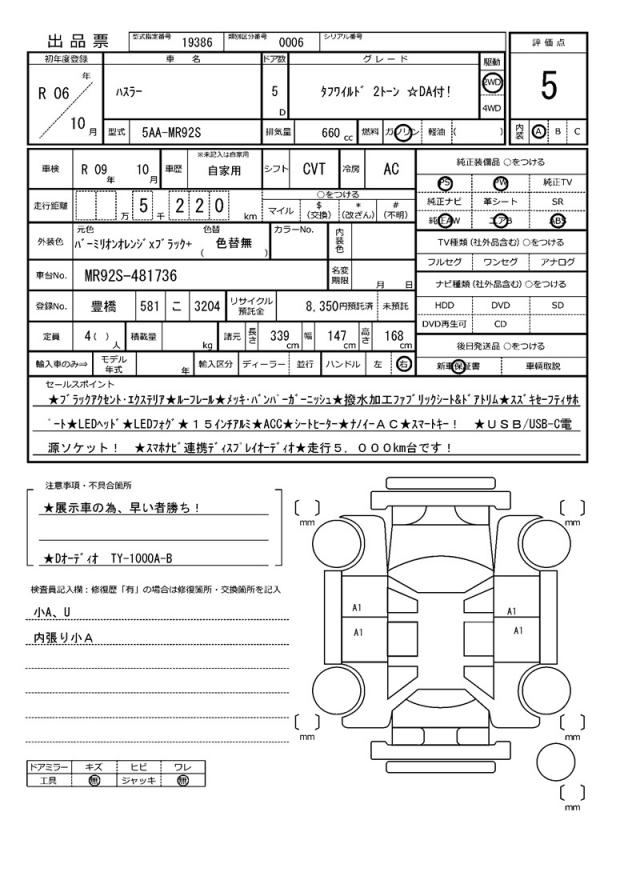 出品票 型式指定番号 19386 類別区分番号 0006 シリアル番号
評価点
5
内装 A B C
初年度登録 車名 ドア数 グレード 駆動
R 06 年 10 月
ハスラー 5 D タフワイルド 2トーン ☆DA付! 2WD
4WD
型式 5AA-MR92S 排気量 660 cc 燃料 ガソリン 軽油 ( )
車検 R 09 年 10 月 車歴 ※未記入は自家用 自家用 シフト CVT 冷房 AC
走行距離 万 5 千 2 2 0 km ○をつける
マイル $(交換) *(改ざん) #(不明)
外装色 元色 バーミリオンオレンジxブラック+ 色替 ( 色替無 ) カラーNo. 内装色
車台No. MR92S-481736 名変期限 月 日
登録No. 豊橋 581 こ 3204 リサイクル預託金 8,350円預託済 未預託
定員 4( ) 人 積載量 kg 諸元 長さ 339 cm 幅 147 cm 高さ 168 cm
輸入車のみ⇒ モデル年式 年 輸入区分 ディーラー 並行 ハンドル 左 右
純正装備品 ○をつける
PS PW 純正TV
純正ナビ 革シート SR
純正AW エアB ABS
TV種類 (社外品含む) ○をつける
フルセグ ワンセグ アナログ
ナビ種類 (社外品含む) ○をつける
HDD DVD SD
DVD再生可 CD
後日発送品 ○をつける
新車保証書 車輌取説
セールスポイント
★ブラックアクセント・エクステリア★ルーフレール★メッキ・バンパーガーニッシュ★撥水加工ファブリックシート&ドアトリム★スズキセーフティサホ
゚ート★LEDヘッド★LEDフォグ★15インチアルミ★ACC★シートヒーター★ナノイーAC★スマートキー! ★USB/USB-C電
源ソケット! ★スマホナビ連携ディスプレイオーディオ★走行5,000km台です!
注意事項・不具合箇所
★展示車の為、早い者勝ち!
★Dオーディオ TY-1000A-B
検査員記入欄:修復歴「有」の場合は修復箇所・交換箇所を記入
小A、U
内張り小A
ドアミラー キズ ヒビ ワレ
工具 無 ジャッキ 無
mm
mm
A1
A1
A1
A1
mm
mm
mm